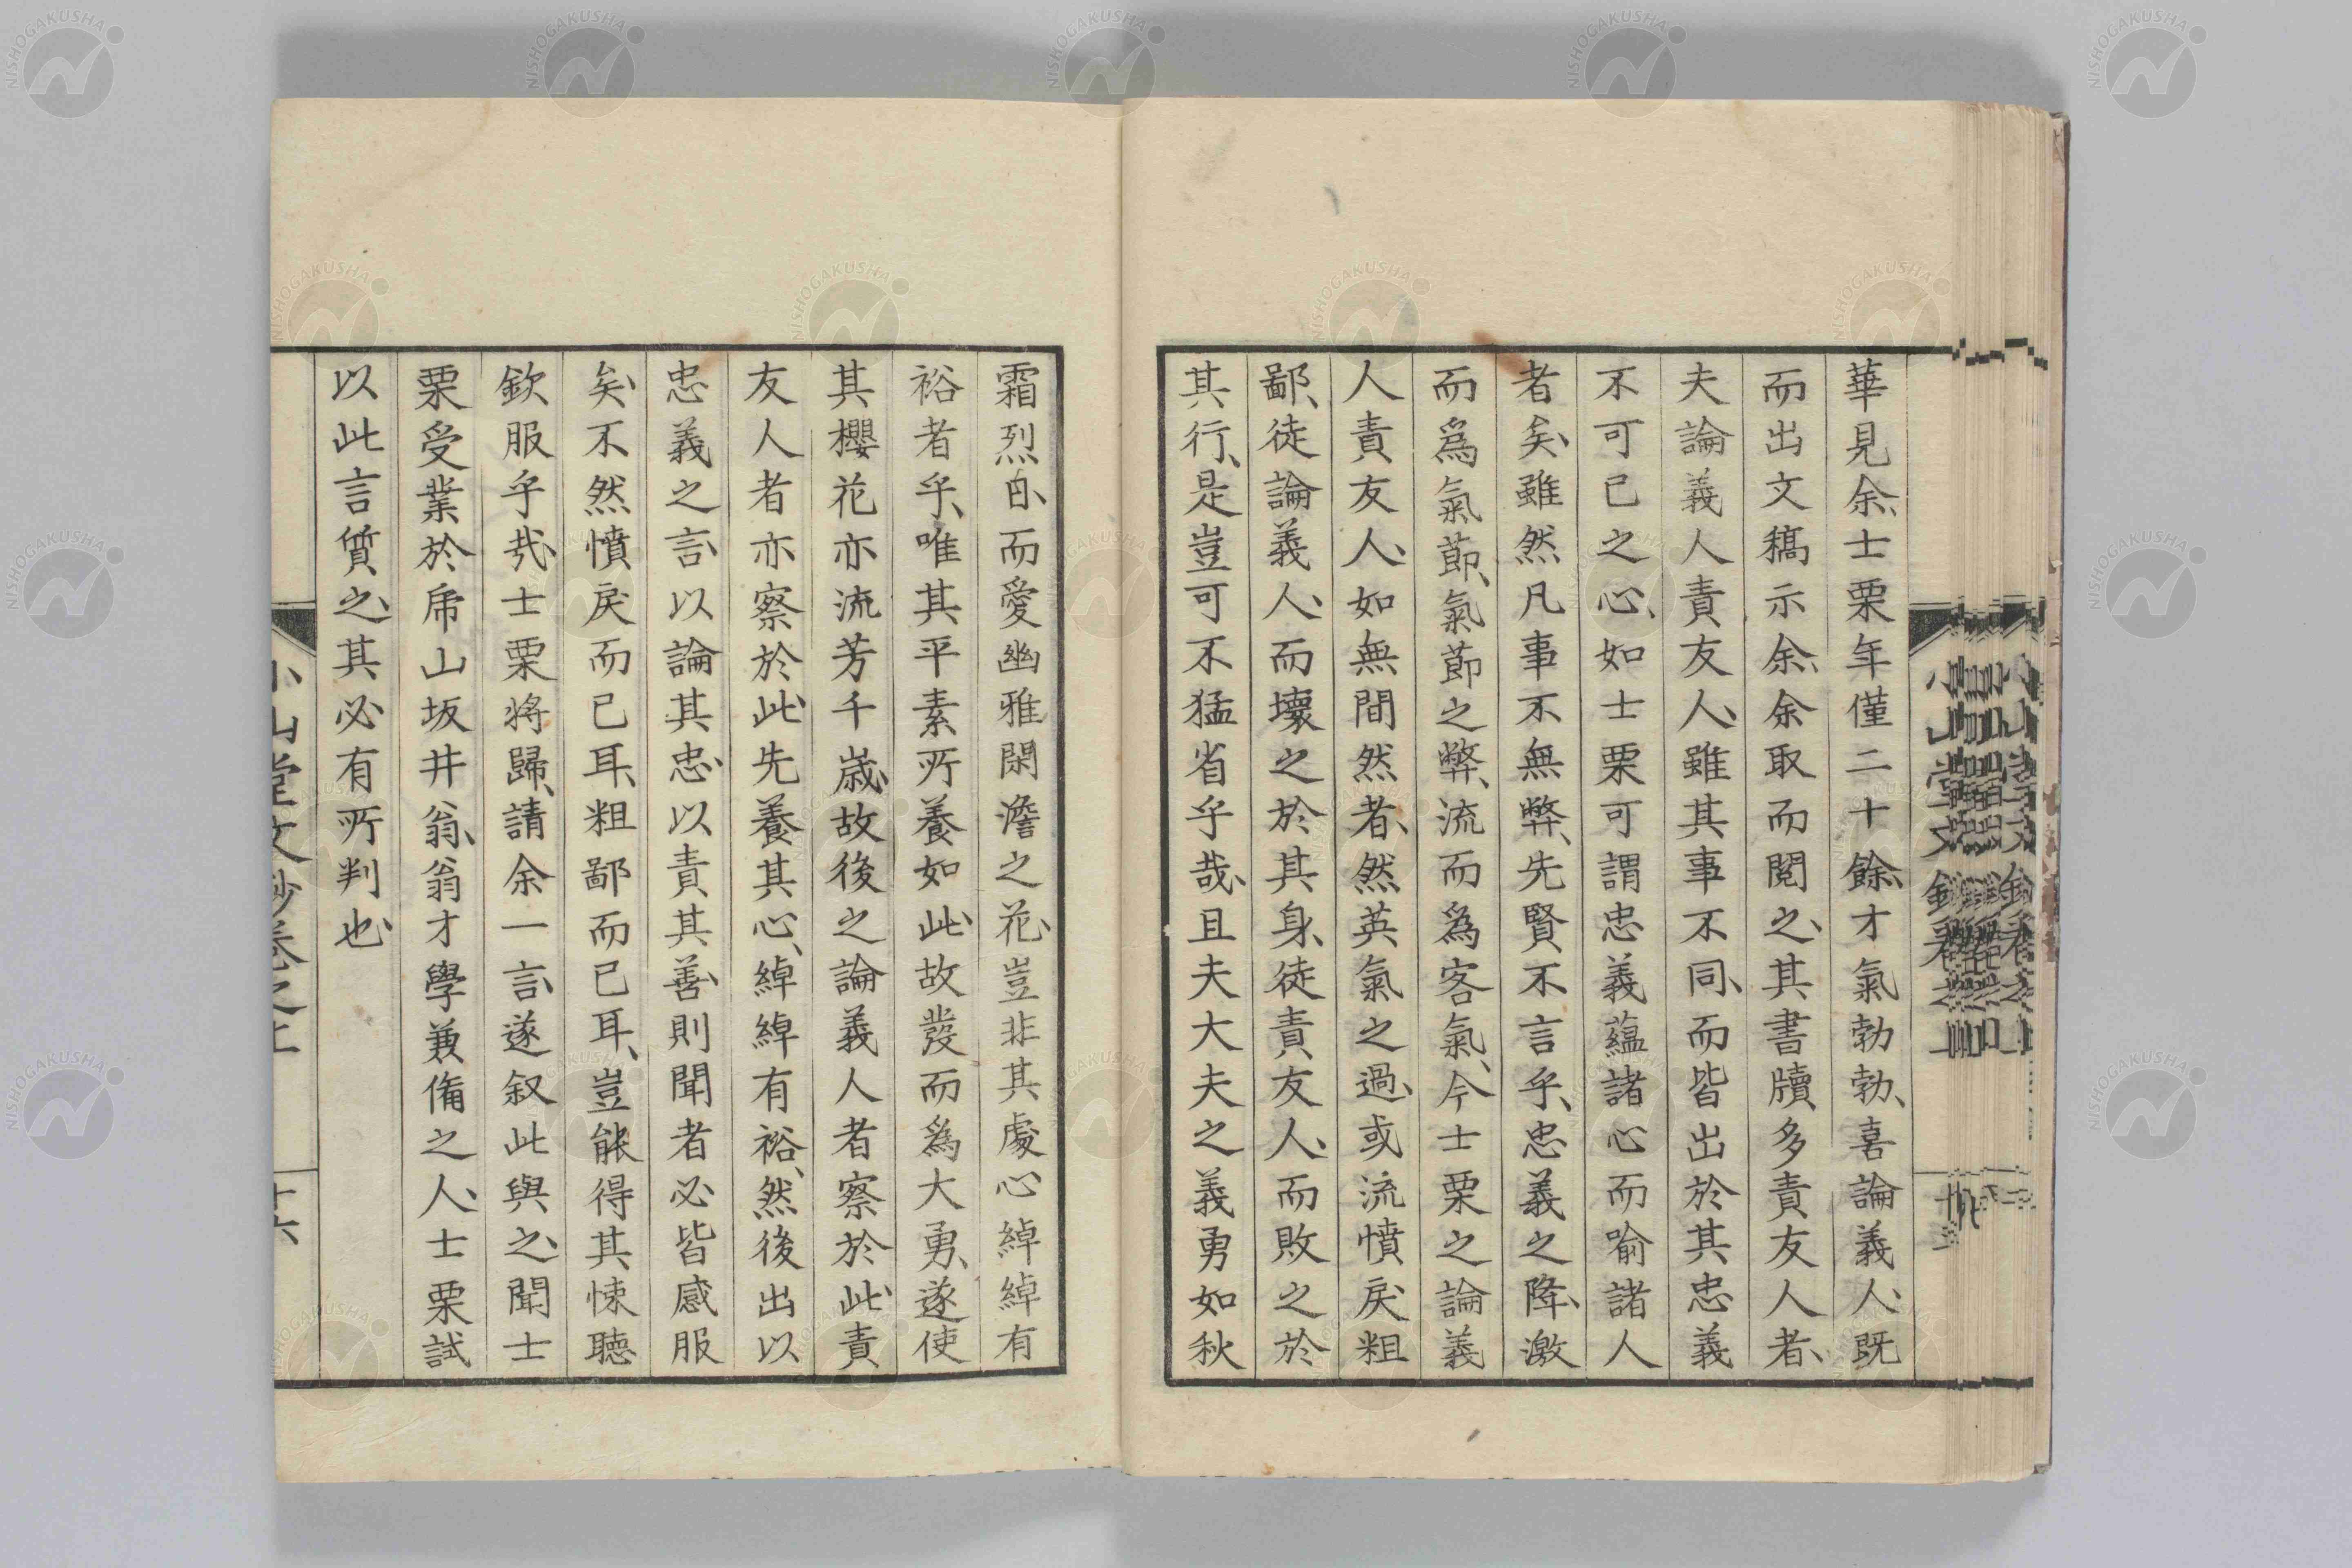 華見余、士栗年僅二十餘、才氣勃勃、喜論義人、既
而出文稿示余、余取而閱之、其書牘多責友人者、
夫論義人責友人、雖其事不同、而皆出於其忠義
不可已之心、如士栗可謂忠義蘊諸心而喻諸人
者矣、雖然凡事不無弊、先賢不言乎、忠義之降、激
而爲氣節、氣節之弊、流而爲客氣、今士栗之論義
人責友人、如無間然者、然英氣之過、或流憤戾粗
鄙、徒論義人、而壞之於其身、徒責友人、而敗之於
其行、是豈可不猛省乎哉、且夫大夫之義勇如秋
霜烈白、而愛幽雅閑澹之花、豈非其處心綽綽有
裕者乎、唯其平素所養如此、故發而爲大勇、遂使
其櫻花亦流芳千歲、故後之論義人者察於此、責
友人者亦察於此、先養其心、綽綽有裕、然後出以
忠義之言、以論其忠、以責其善、則聞者必皆感服
矣、不然憤戾而已耳、粗鄙而已耳、豈能得其悚聽
欽服乎哉、士栗將歸、請余一言、遂叙此與之、聞士
栗受業於帍山坂井翁、翁才學兼備之人、士栗試
以此言質之、其必有所判也、
小山堂文鈔卷之上
十六
NISHOGAKUSHA